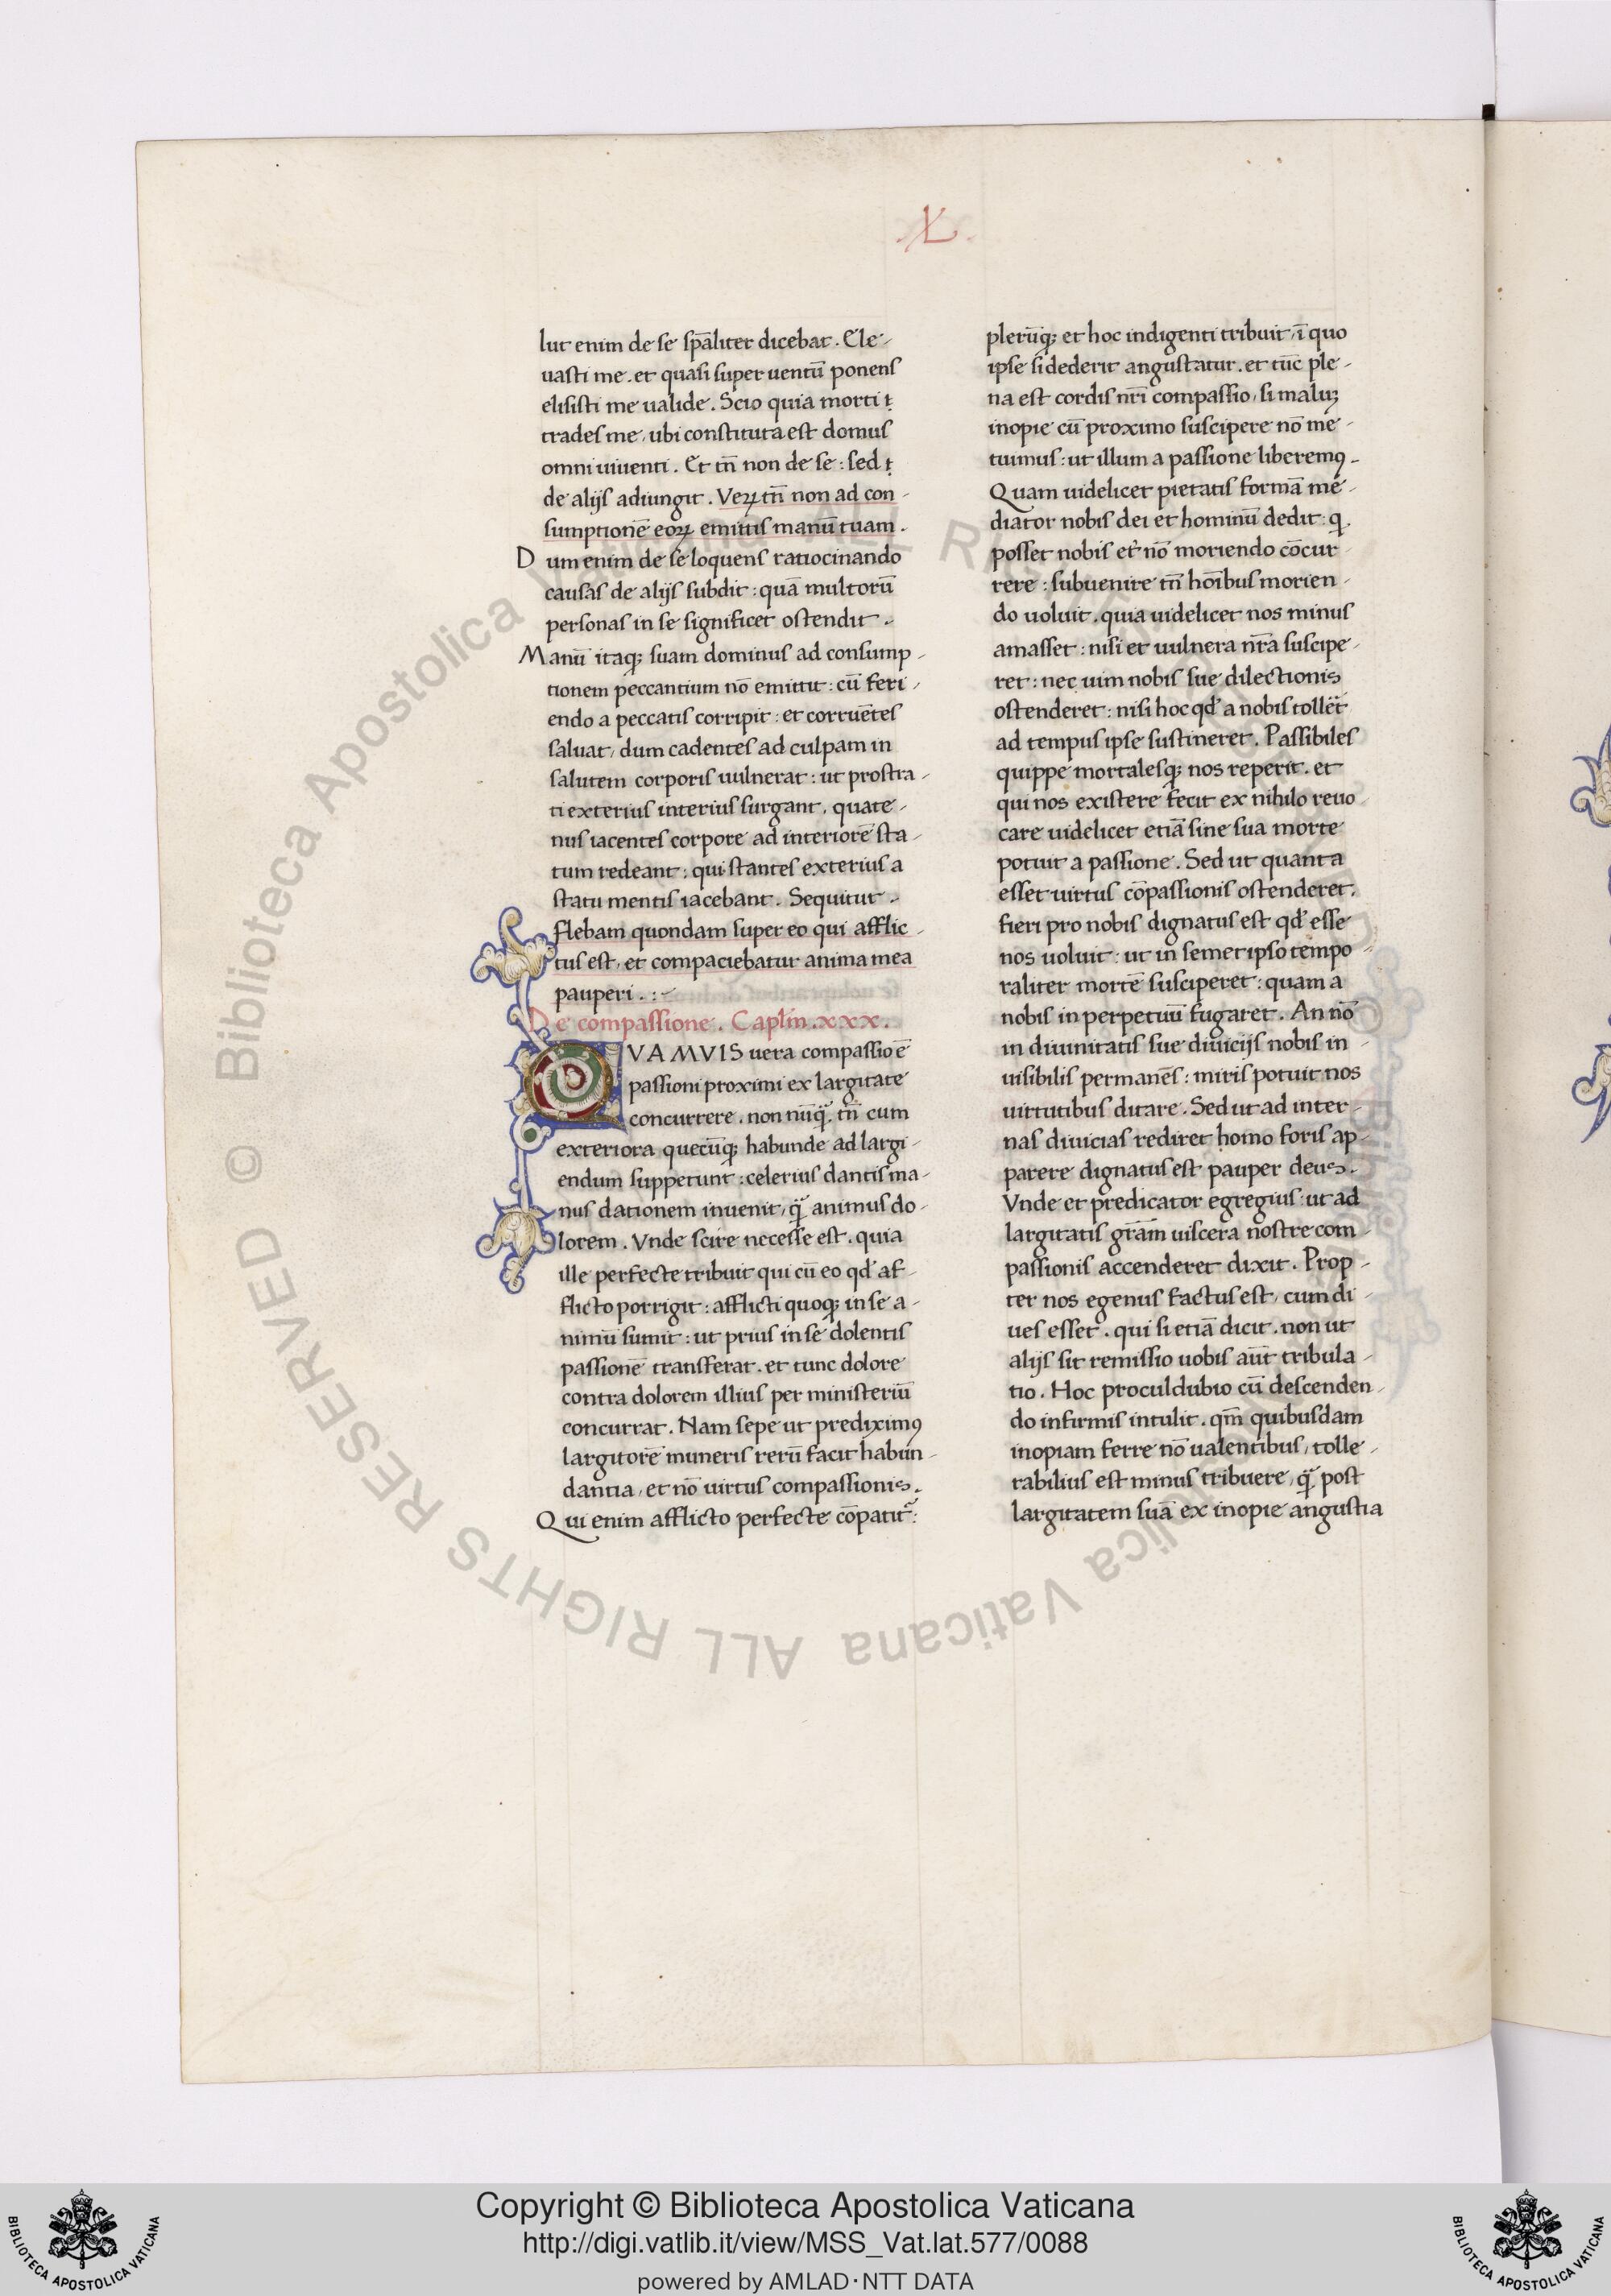 .XL.
lut enim de se sp̄aliter dicebat. Ele-
uasti me. et quasi super uentū ponens
elisisti me ualide. Scio quia morti
trades me, ubi constituta est domus
omni uiuenti. Et tn̄ non de se: sed
de alijs adiungit. Veꝝ tn̄ non ad con-
sumptionē eoꝝ emittis manū tuam.
Dum enim de se loquens ratiocinando
causas de alijs subdit: quā multorū
personas in se significet ostendit.
Manū itaqꝫ suam dominus ad consump-
tionem peccantium nō emittit: cū feri-
endo a peccatis corripit: et corruētes
saluat, dum cadentes ad culpam in
salutem corporis uulnerat: ut prostra-
ti exterius interius surgant, quate-
nus iacentes corpore ad interiorē sta-
tum redeant: qui stantes exterius a
statu mentis iacebant. Sequitur.
flebam quondam super eo qui afflic-
tus est, et compaciebatur anima mea
pauperi.:~
De compassione. Caplm̄.xxx.
QVAMVIS uera compassio ē
passioni proximi ex largitate
concurrere. non nūq̄. tn̄ cum
exteriora quecūqꝫ habunde ad largi-
endum suppetunt: celerius dantis ma-
nus dationem inuenit, q̄ animus do-
lorem. Vnde scire necesse est. quia
ille perfecte tribuit qui cū eo qd' af-
flicto porrigit: afflicti quoqꝫ in se a-
nimū sumit: ut prius in se dolentis
passionē transferat. et tunc dolore
contra dolorem illius per ministeriū
concurrat. Nam sepe ut prediximꝰ
largitorē muneris rerū facit habun-
dantia, et nō uirtus compassionis.
Qui enim afflicto perfecte cōpatit᷑:
plerūqꝫ et hoc indigenti tribuit, ī quo
ipse si dederit angustatur. et tūc ple-
na est cordis nr̄i compassio, si maluꝫ
inopie cū proximo suscipere nō me-
tuimus: ut illum a passione liberemꝰ.
Quam uidelicet pietatis formā me-
diator nobis dei et hominū dedit: q.
posset nobis et nō moriendo cōcur-
rere: subuenire tn̄ hoībus morien-
do uoluit. quia uidelicet nos minus
amasset: nisi et uulnera nr̄a suscipe-
ret: nec uim nobis sue dilectionis
ostenderet: nisi hoc qd' a nobis tolleret
ad tempus ipse sustineret. Passibiles
quippe mortalesqꝫ nos reperit. et
qui nos existere fecit ex nihilo reuo-
care uidelicet etiā sine sua morte
potuit a passione. Sed ut quanta
esset uirtus cōpassionis ostenderet.
fieri pro nobis dignatus est qd' esse
nos uoluit: ut in semetipso tempo-
raliter mortē susciperet: quam a
nobis in perpetuū fugaret. An nō
in diuinitatis sue diuicijs nobis in-
uisibilis permanēs: miris potuit nos
uirtutibus ditare. Sed ut ad inter-
nas diuicias rediret homo foris ap-
parere dignatus est pauper deus.
Vnde et predicator egregius: ut ad
largitatis gr̄am uiscera nostre com-
passionis accenderet dixit. Prop-
ter nos egenus factus est, cum di-
ues esset. qui si etiā dicit. non ut
alijs sit remissio uobis aūt tribula-
tio. Hoc proculdubio cū descenden-
do infirmis intulit. qm̄ quibusdam
inopiam ferre nō ualentibus, tolle-
rabilius est minus tribuere, q̄ post
largitatem suā ex inopie angustia
© Biblioteca Apostolica Vaticana ALL RIGHTS RESERVED
Copyright © Biblioteca Apostolica Vaticana
http://digi.vatlib.it/view/MSS_Vat.lat.577/0088
powered by AMLAD·NTT DATA
BIBLIOTECA APOSTOLICA VATICANA
BIBLIOTECA APOSTOLICA VATICANA